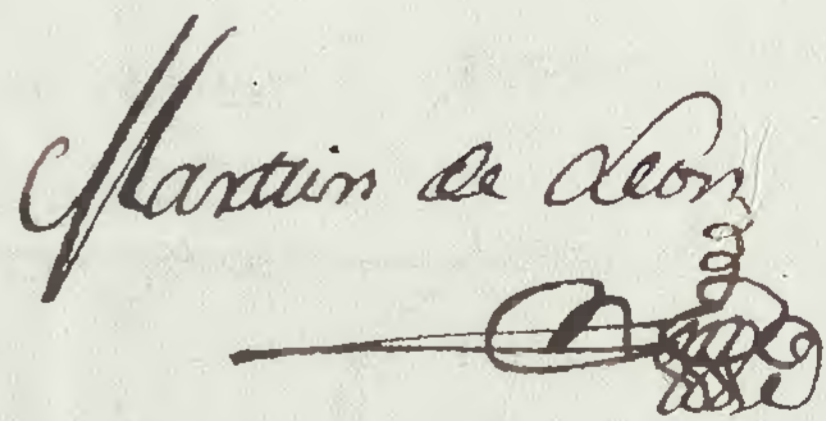 Martin de Leon